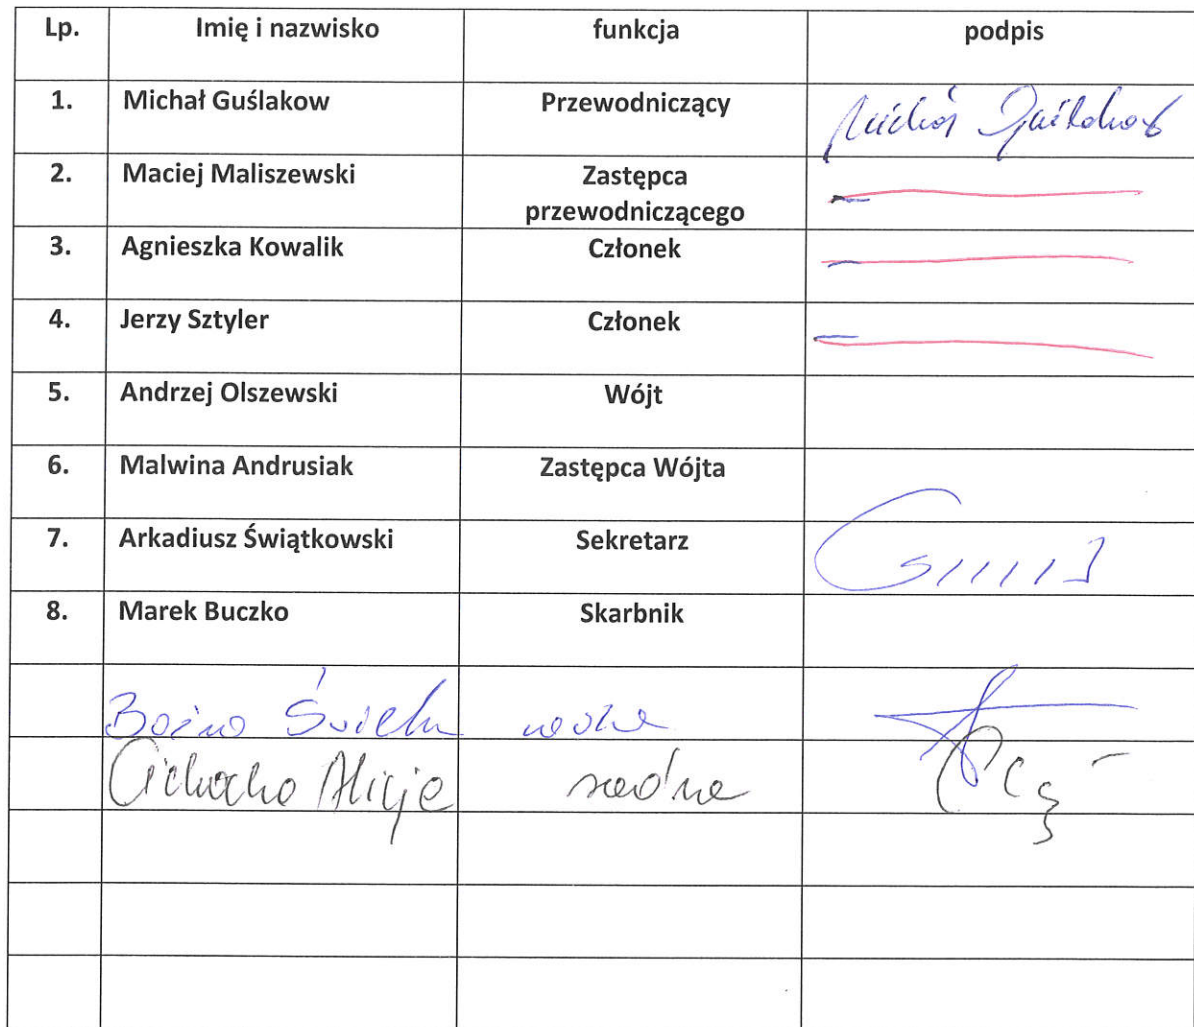 Lp. Imię i nazwisko funkcja podpis
1. Michał Guślakow Przewodniczący
2. Maciej Maliszewski Zastępca
przewodniczącego
3. Agnieszka Kowalik Członek
4. Jerzy Sztyler Członek
5. Andrzej Olszewski Wójt
6. Malwina Andrusiak Zastępca Wójta
7. Arkadiusz Świątkowski Sekretarz
8. Marek Buczko Skarbnik
radna
Cichocka Alicja radna